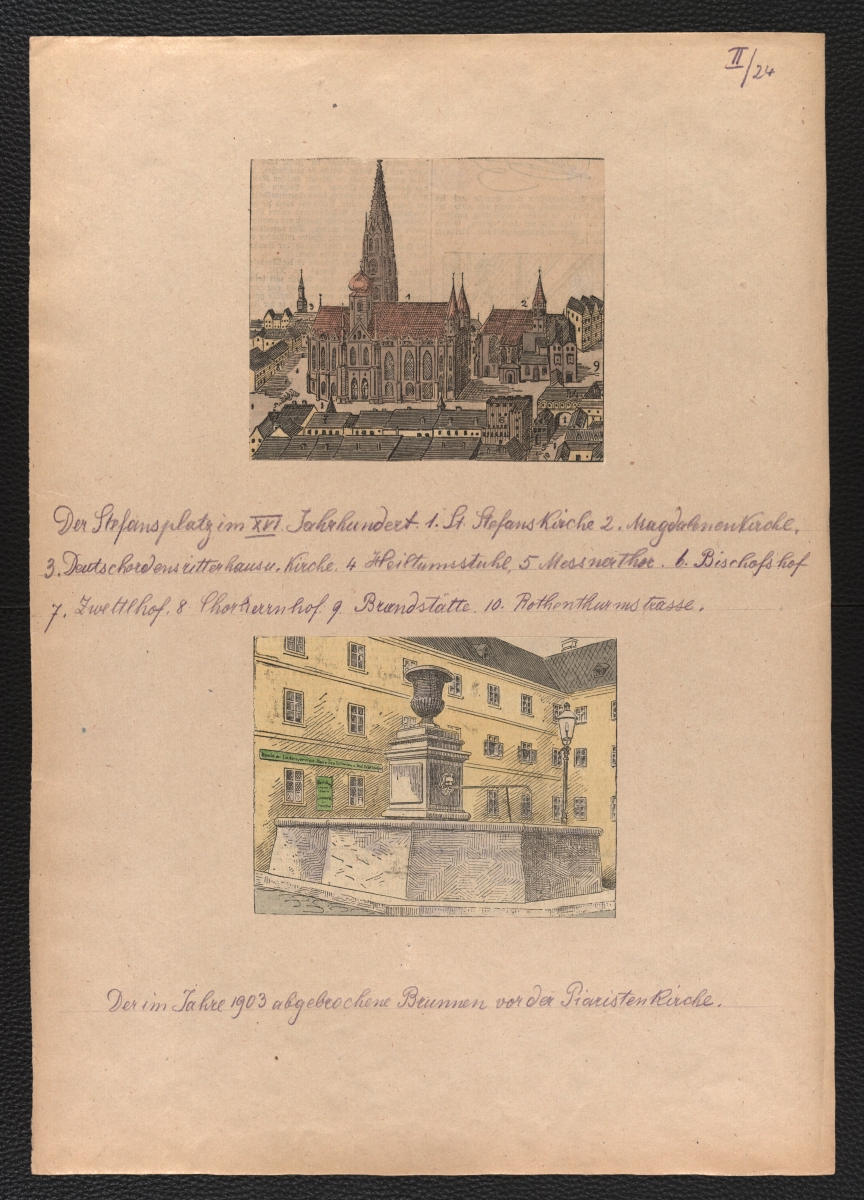 II/24
3 1 2
9
10
Der Stefansplatz im XVI. Jahrhundert. 1. St. Stefans Kirche 2. Magdalenenkirche,
3. Deutschordensritterhaus u. Kirche. 4 Heiltumsstuhl, 5 Messnerthor. 6. Bischofshof
7. Zwettlhof. 8 Chorherrnhof 9 Brandstätte. 10. Rothenthurmstrasse.
Der im Jahre 1903 abgebrochene Brunnen vor der Piaristenkirche.